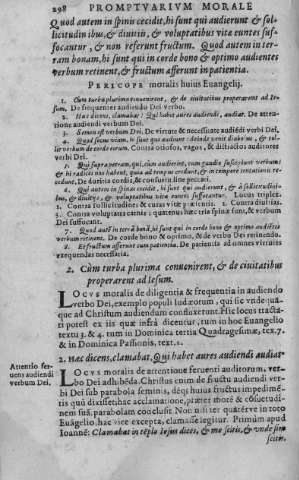 298 PROMPTVARIVM MORALE
Quod autem in spinis cecidit, hi sunt qui audierunt & sol-
licitudinibus, & diuitiis, & voluptatibus vitæ euntes suf-
focantur, & non referunt fructum. Quod autem in ter-
ram bonam, hi sunt qui in corde bono & optimo audientes
verbum retinent, & fructum afferunt in patientia.
PERICOPE moralis huius Euangelij.
1. Cum turba plurima conuenirent, & de ciuitatibus properarent ad Ie-
sum. De frequenter audiendo Dei verbo.
2. Hæc dicens, clamabat: Qui habet aures audiendi, audiat. De atten-
tione audiendi verbum Dei.
3. Semen est verbum Dei. De virtute & necessitate audiẽdi verbi Dei.
4. Qui secus viam, hi sunt qui audiunt: deinde venit diabolus, & tol-
lit verbum de corde eorum. Contra otiosos, vagos, & distractos auditores
verbi Dei.
5. Qui supra petram, qui, cùm audierint, cum gaudio suscipiunt verbum:
& hi radices non habent, quia ad tempus credunt, & in tempore tentationis re-
cedunt. De duritia cordis, & consuetudine peccati.
6. Quod autem in spinas cecidit, hi sunt qui audierunt, & à sollicitudini-
bus, & diuitiis, & voluptatibus vitæ euntes suffocantur. Locus triplex.
1. Contra sollicitudines & curas vitæ præsentis. 2. Contra diuitias.
3. Contra voluptates carnis: quatenus hæc tria spinæ sunt, & verbum
Dei suffocant.
7. Quod autẽ in terrã bonã, hi sunt qui in corde bono & optimo audiẽtes
verbum retinent. De corde bono & optimo, & de verbo Dei retinendo.
8. Et fructum afferunt cum patientia. De patientia ad omnes virtutes
exequendas necessaria.
2. Cùm turba plurima conuenirent, & de ciuitatibus
properarent ad Iesum.
LOCVS moralis de diligentia & frequentia in audiendo
verbo Dei, exemplo populi Iudæorum, qui sic vnde qua-
que ad Christum audiendum confluxerunt. Hic locus tracta-
ri potest ex iis quæ infrà dicentur, tum in hoc Euangelio
textu 3. & 4. tum in Dominica tertia Quadragesimæ, tex. 7.
& in Dominica Passionis, text. 1.
2. Hæc dicens, clamabat, Qui habet aures audiendi audiat.
Attentio fer-
uens audiendi
verbum Dei.
LOCVS moralis de attentione feruenti auditorum, ver-
bo Dei adhibẽda. Christus enim de fructu audiendi ver-
bi Dei sub parabola seminis, déq; huius fructus impedimẽ-
tis quũ dixisset hãc acclamatione, plures morẽ & cõsuetudi-
nem suã, parabolam conclusit. Non nisi ter quatérve in toto
Euãgelio, hac vice excepta, clamasse legitur. Primùm apud
Ioannẽ: Clamabat in tẽplo Iesus dicẽs, & me scitis, & vnde sim
scitis.